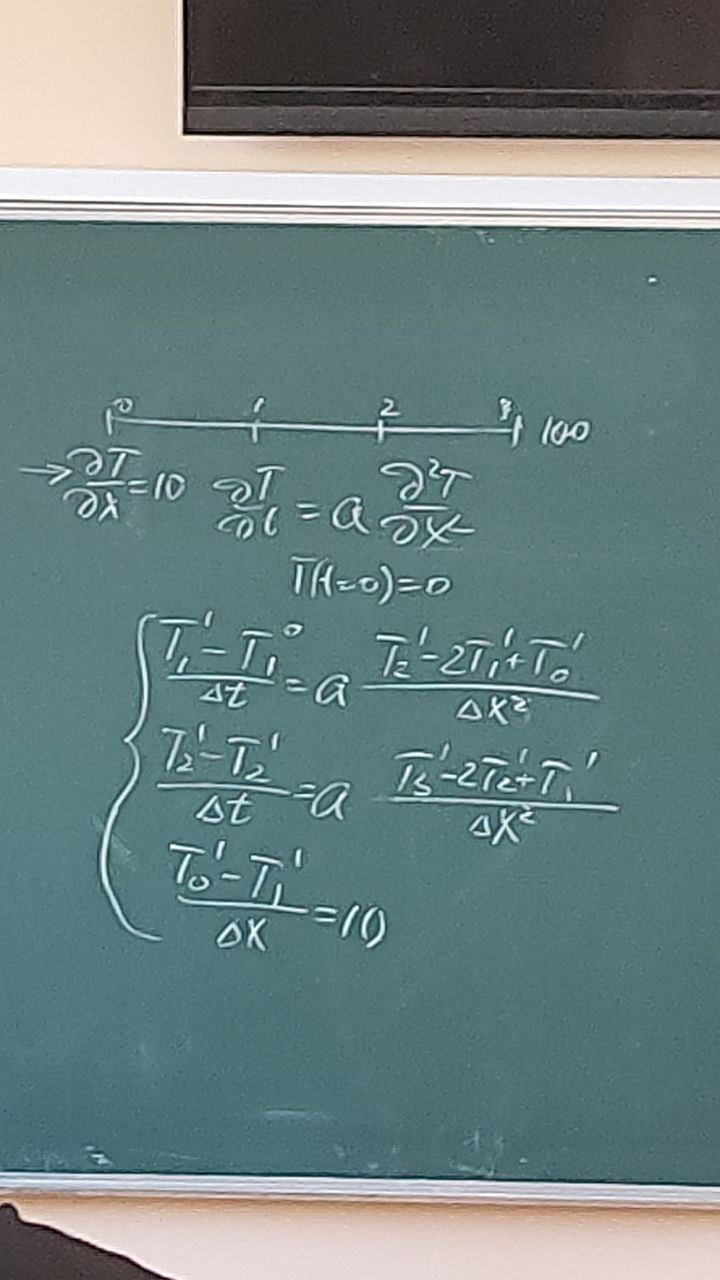 0 1 2 3 100
→ ∂T/∂x = 10 ∂T/∂t = a ∂²T/∂x²
T(t=0)=0
(T₁¹ - T₁⁰)/Δt = a (T₂¹ - 2T₁¹ + T₀¹)/Δx²
(T₂¹ - T₂¹)/Δt = a (T₃¹ - 2T₂¹ + T₁¹)/Δx²
(T₀¹ - T₁¹)/Δx = 10